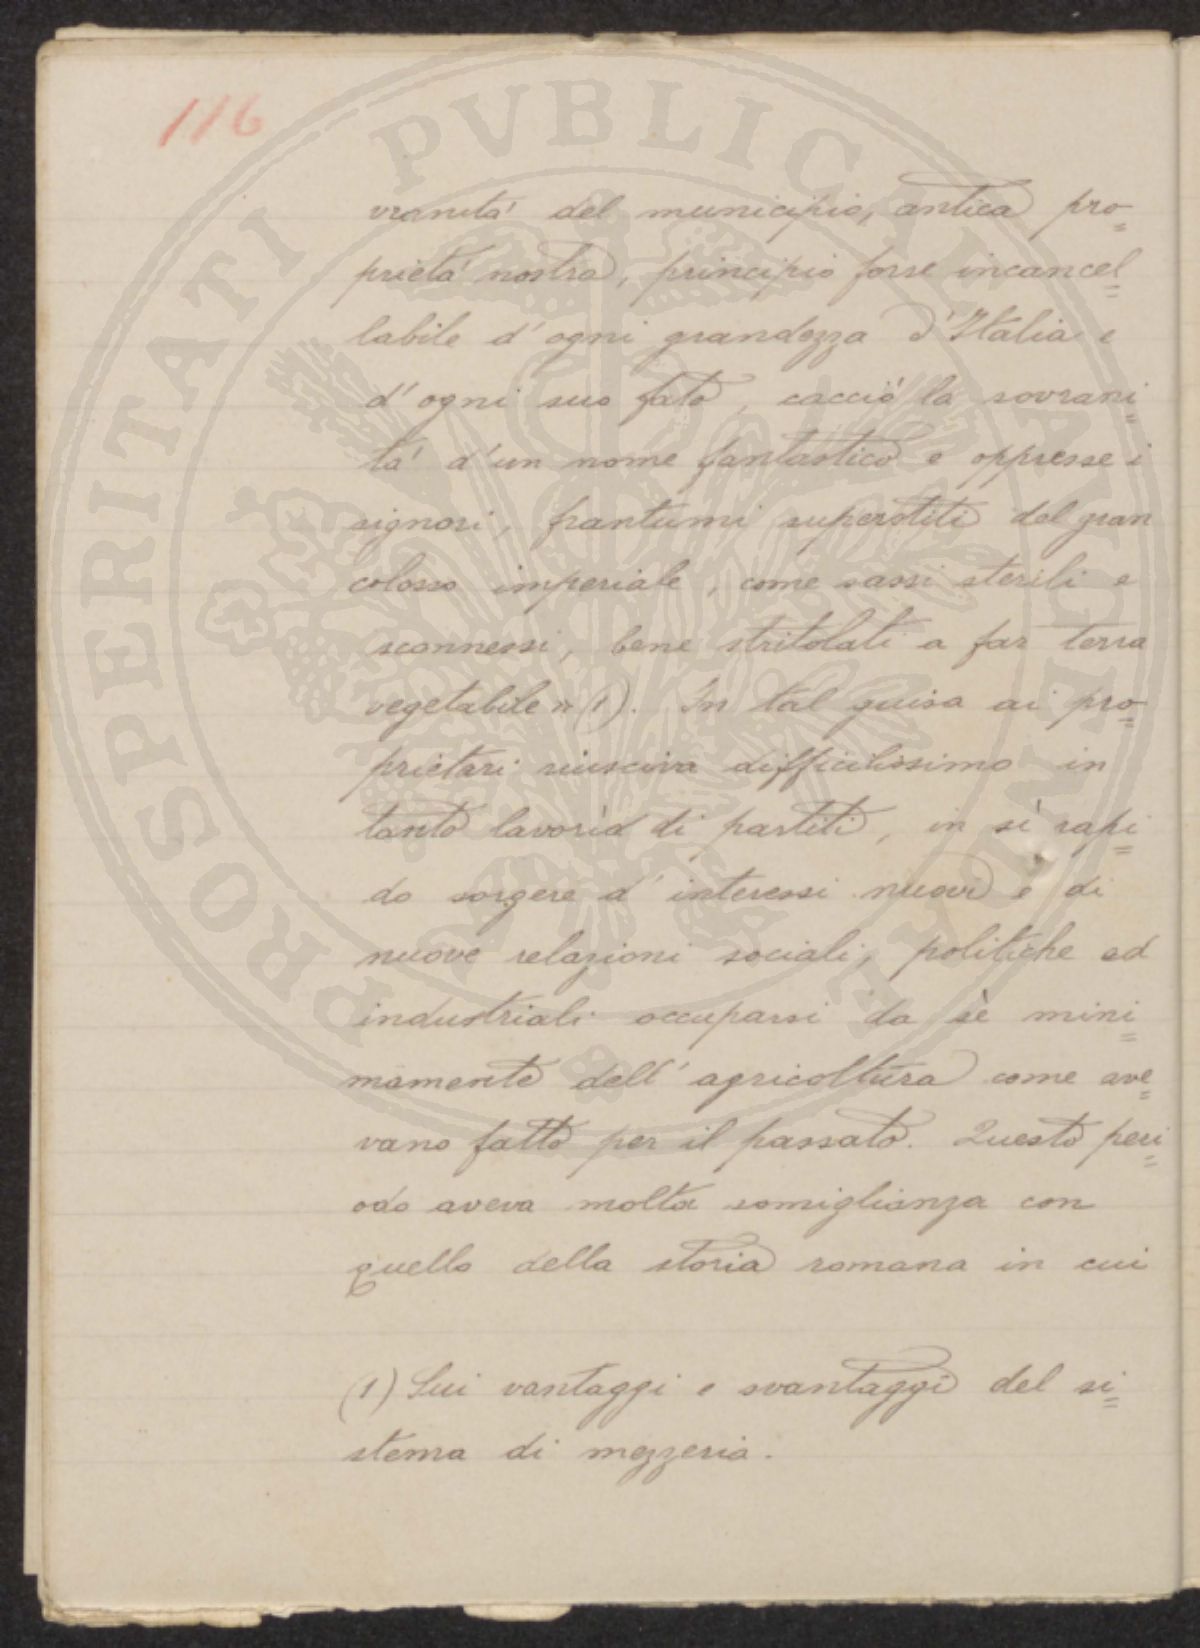 116
vranità del municipio, antica pro=
prietà nostra, principio forse incancel=
labile d'ogni grandezza d'Italia e
d'ogni suo fato, cacciò la sovrani=
tà d'un nome fantastico e oppresse i
signori, frantumi superstiti del gran
colosso imperiale, come sassi sterili e
sconnessi, bene stritolati a far terra
vegetabile» (1). In tal guisa ai pro=
prietari riusciva difficilissimo in
tanto lavorìo di partiti, in sì rapi=
do sorgere d'interessi nuovi e di
nuove relazioni sociali, politiche ed
industriali occuparsi da sè mini=
mamente dell'agricoltura come ave=
vano fatto per il passato. Questo peri=
odo aveva molta somiglianza con
quello della storia romana in cui
(1) Sui vantaggi e svantaggi del si=
stema di mezzeria.
PROSPERITATI PVBLICAE AVGENDAE